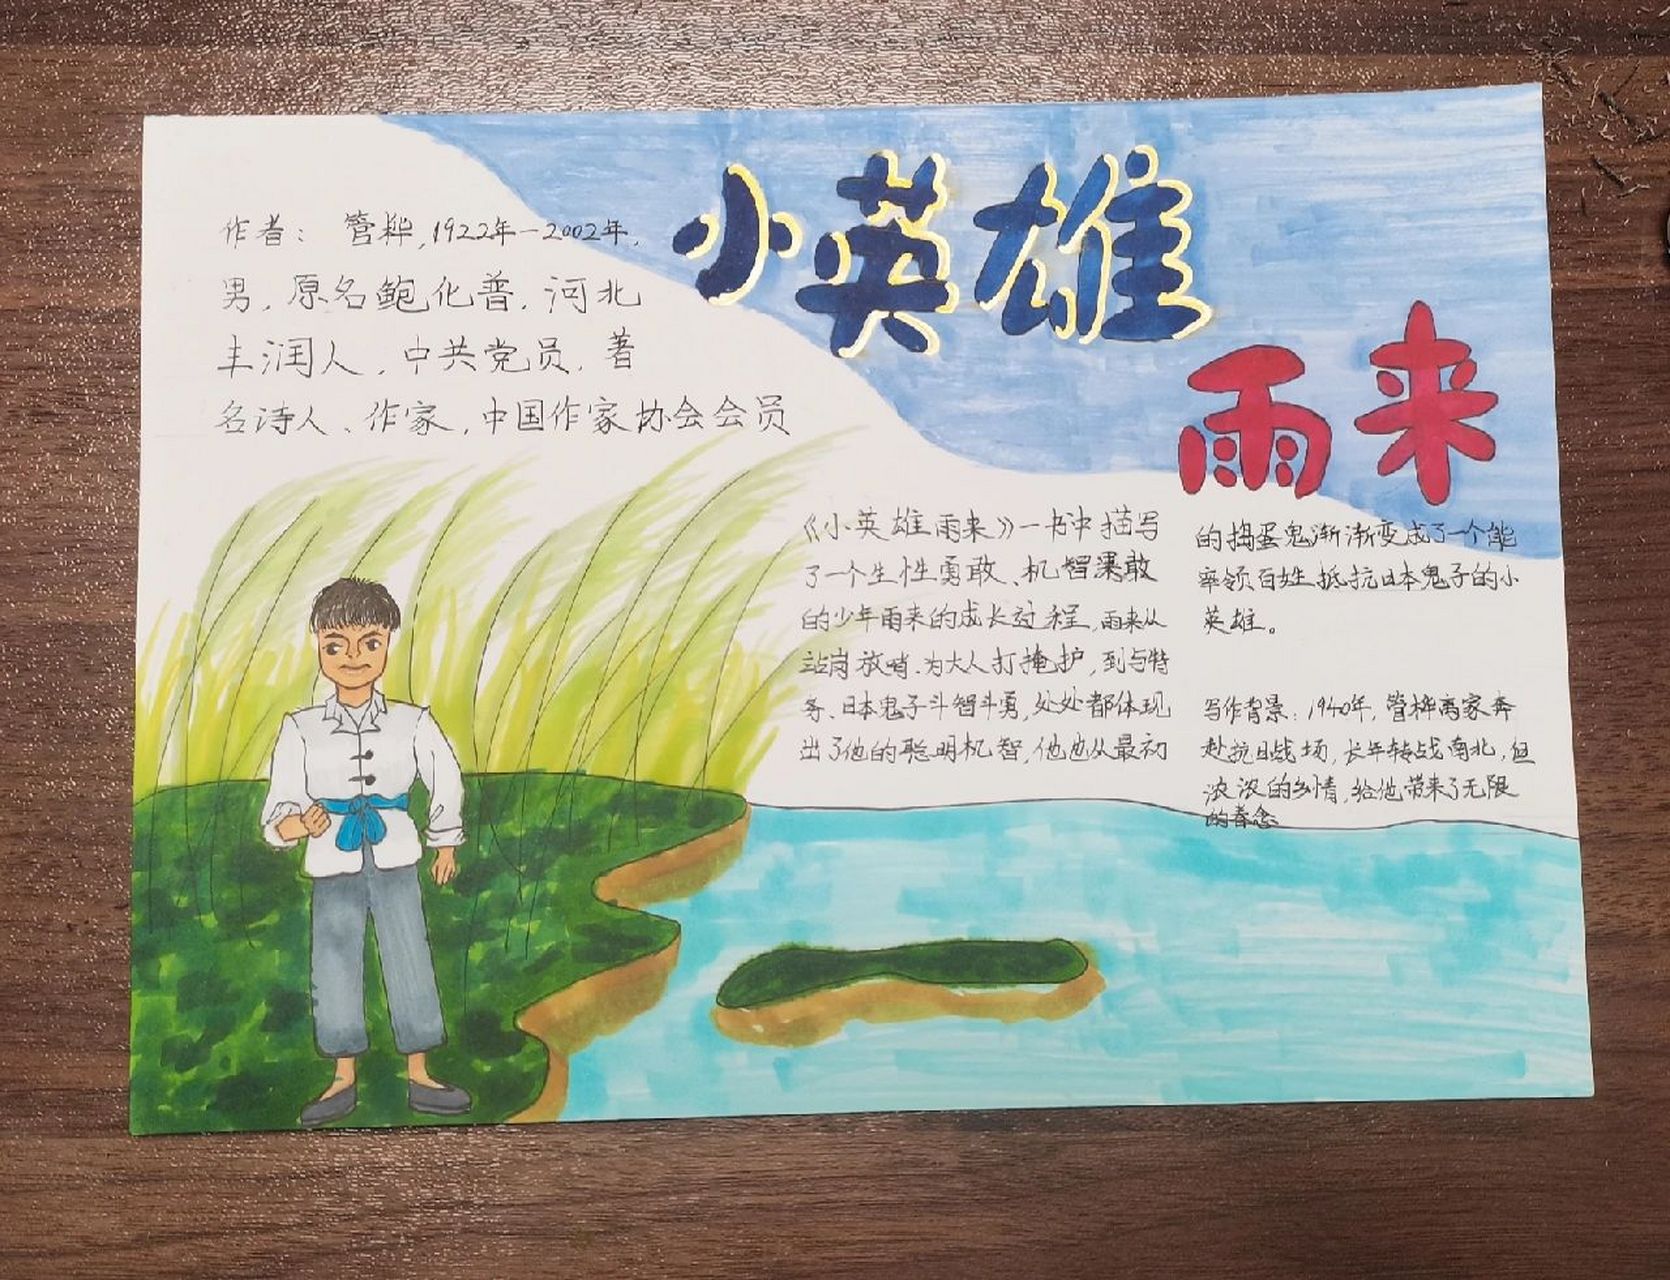 小英雄
雨来
作者：管桦，1922年—2002年，
男，原名鲍化普，河北
丰润人，中共党员，著
名诗人、作家，中国作家协会会员
《小英雄雨来》一书中描写
了一个生性勇敢、机智果敢
的少年雨来的成长过程，雨来从
站岗放哨、为大人打掩护，到与特
务、日本鬼子斗智斗勇，处处都体现
出了他的聪明机智，他也从最初
的捣蛋鬼渐渐变成了一个能
率领百姓抵抗日本鬼子的小
英雄。
写作背景：1940年，管桦离家奔
赴抗日战场，长年转战南北，但
浓浓的乡情，给他带来了无限
的眷念